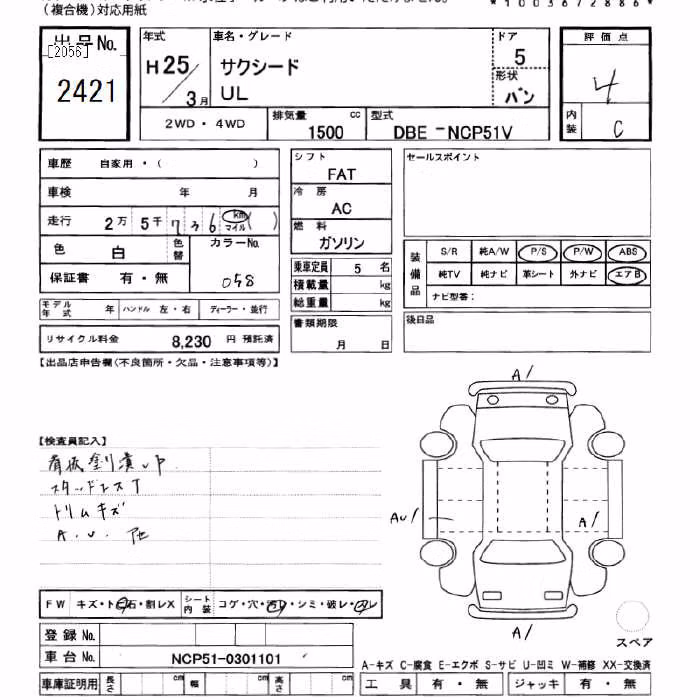 (複合機)対応用紙
*1003672886*
出品No.
[2056]
2421
年式
H25/3月
車名・グレード
サクシード
UL
ドア
5
形状
バン
評価点
4
内装
C
2WD・4WD
排気量 cc
1500
型式
DBE-NCP51V
車歴 自家用・( )
車検 年 月
走行 2万 5千 7 3 6 km マイル ( )
色 白 色替
カラーNo.
058
保証書 有・無
モデル年式 年 ハンドル 左・右 ディーラー・並行
リサイクル料金 8,230 円 預託済
シフト
FAT
冷房
AC
燃料
ガソリン
乗車定員 5 名
積載量 kg
総重量 kg
書類期限
月 日
セールスポイント
装備品
S/R 純A/W P/S P/W ABS
純TV 純ナビ 革シート 外ナビ エアB
ナビ型番:
後日品
【出品店申告欄(不良箇所・欠品・注意事項等)】
【検査員記入】
スタッドレスT
トリムキズ
A.U. 他
A/
AU/
A/
A/
スペア
FW キズ・ト石・割レX シート内装 コゲ・穴・汚レ・シミ・破レ・スレ
登録No.
車台No. NCP51-0301101
車庫証明用 長さ cm 幅 cm 高さ cm
A-キズ C-腐食 E-エクボ S-サビ U-凹ミ W-補修 XX-交換済
工具 有・無 ジャッキ 有・無